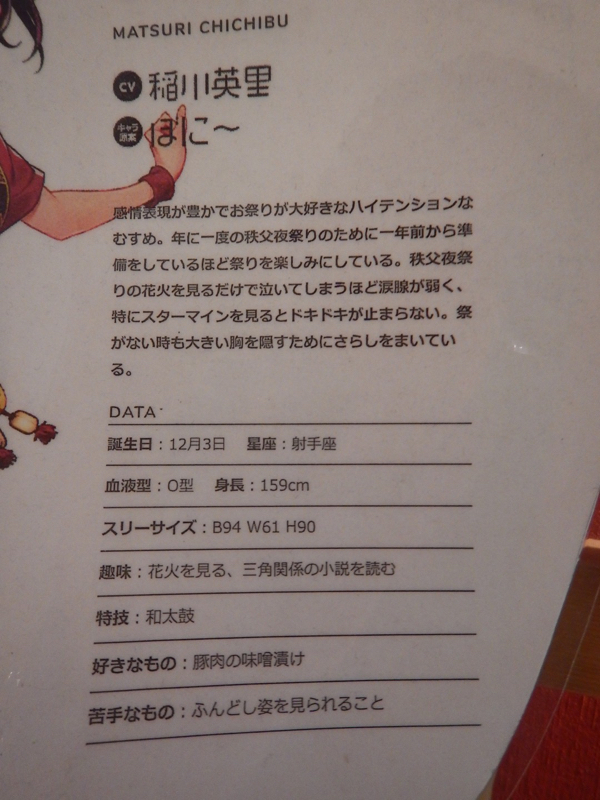 MATSURI CHICHIBU
CV 稲川英里
キャラ原案 ぽに〜
感情表現が豊かでお祭りが大好きなハイテンションな
むすめ。年に一度の秩父夜祭りのために一年前から準
備をしているほど祭りを楽しみにしている。秩父夜祭
りの花火を見るだけで泣いてしまうほど涙腺が弱く、
特にスターマインを見るとドキドキが止まらない。祭
がない時も大きい胸を隠すためにさらしをまいてい
る。
DATA
誕生日：12月3日　星座：射手座
血液型：O型　身長：159cm
スリーサイズ：B94 W61 H90
趣味：花火を見る、三角関係の小説を読む
特技：和太鼓
好きなもの：豚肉の味噌漬け
苦手なもの：ふんどし姿を見られること